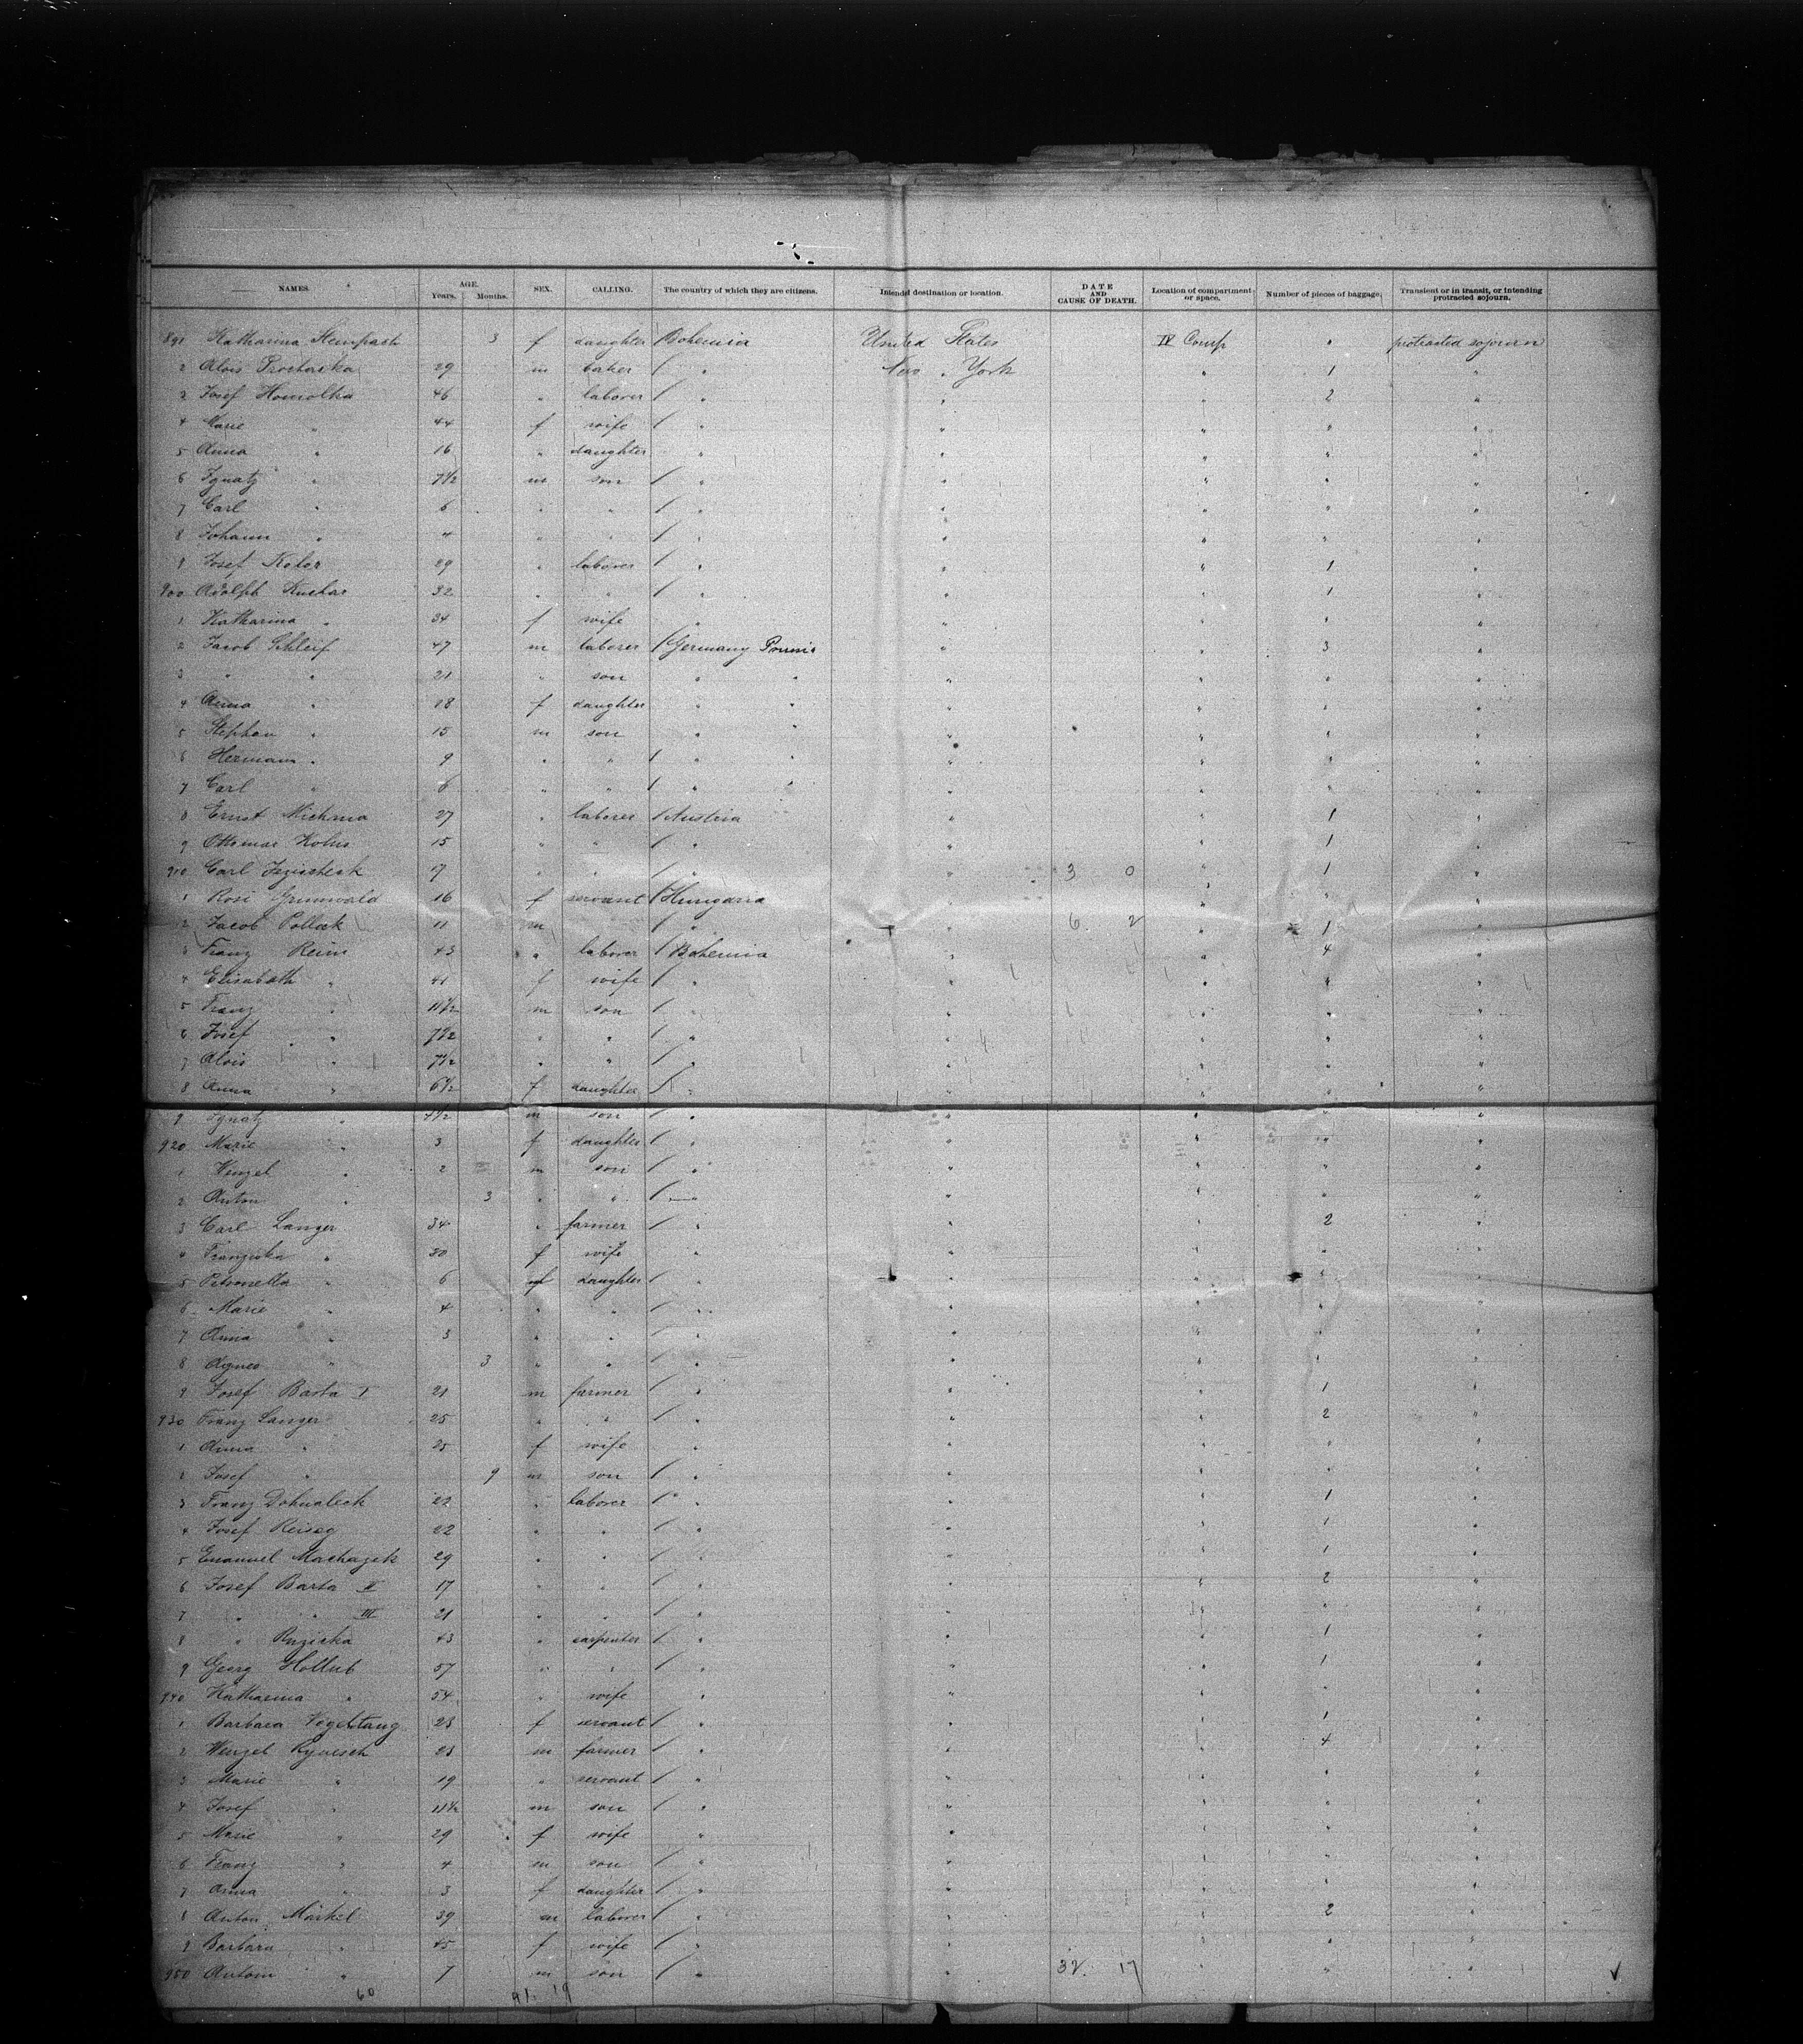 NAMES. AGE. Years. Months. SEX. CALLING. The country of which they are citizens. Intended destination or location. DATE AND CAUSE OF DEATH. Location of compartment or space. Number of pieces of baggage. Transient or in transit, or intending protracted sojourn.
891 Katharina 3 f daughter Bohemia United States IV Comp " protracted sojourn
2 Alois Prochaska 29 m baker / " New York " 1 "
3 Josef Homolka 46 " laborer / " " " 2 "
4 Marie " 44 f wife / " " " " "
5 Anna " 16 " daughter " " " " "
6 Ignatz " 7 1/2 m son / " " " " "
7 Carl " 6 " " / " " " " "
8 Johann " 4 " " / " " " " "
9 Josef Koter 29 " laborer / " " " 1 "
900 Adolph Kuchar 32 " " / " " " 1 "
1 Katharina " 34 f wife " " " " "
2 Jacob Schleif 47 m laborer / Germany Prussia " " 3 "
3 " " 21 " son " " " " " "
4 Anna " 18 f daughter " " " " " "
5 Stephan " 15 m son " " " " " "
6 Hermann " 9 " " / " " " " " "
7 Carl " 6 " " / " " " " " "
8 Ernst Michna 27 " laborer / Austria " " 1 "
9 Ottomar Kohn 15 " " / " " " 1 "
910 Carl 9 " " / " " 3 0 " 1 "
1 Rosi Grunwald 16 f servant / Hungaria " " " "
2 Jacob Pollak 11 m / " " 6 2 " 1 "
3 Franz Reim 43 " laborer / Bohemia " " 4 "
4 Elisabeth " 41 f wife / " " " " "
5 Franz " 11 1/2 m son / " " " " "
6 Josef " 7 1/2 " " / " " " " "
7 Alois " 7 1/2 " " / " " " " "
8 Anna " 6 1/2 f daughter / " " " " "
9 Ignatz " 4 1/2 m son / " " " " "
920 Marie " 3 f daughter / " " " " "
1 Wenzel " 2 m son / " " " " "
2 Anton " 3 " " / " " " " "
3 Carl Langer 34 " farmer / " " " 2 "
4 Franziska " 30 f wife " " " " "
5 Petronella " 6 f daughter / " " " " "
6 Marie " 4 " " / " " " " "
7 Anna " 3 " " / " " " " "
8 Agnes " 3 " " / " " " " "
9 Josef Barta I 21 m farmer / " " " 1 "
930 Franz Langer 25 " " / " " " 2 "
1 Anna " 25 f wife " " " " "
2 Josef " 9 m son / " " " " "
3 Franz Dohnaleck 22 " laborer / " " " 1 "
4 Josef 22 " " / " " " 1 "
5 Emanuel Machazek 29 " " / " " " 1 "
6 Josef Barta II 17 " " / " " " 2 "
7 " " III 21 " " / " " " " "
8 " Ruzicka 43 " carpenter / " " " 1 "
9 Georg Hollub 57 " " / " " " 1 "
940 Katharina " 54 " wife " " " " "
1 Barbara 23 f servant / " " " 1 "
2 Wenzel 23 m farmer / " " " 4 "
3 Marie " 19 " servant / " " " " "
4 Josef " 11 1/2 m son / " " " " "
5 Marie " 29 f wife " " " " "
6 Franz " 4 m son / " " " " "
7 Anna " 3 f daughter / " " " " "
8 Anton Märkil 39 m laborer / " " " 2 "
9 Barbara " 45 f wife / " " " " "
950 Antoin " 7 m son / " " 32. 17 " " "
60 41. 19